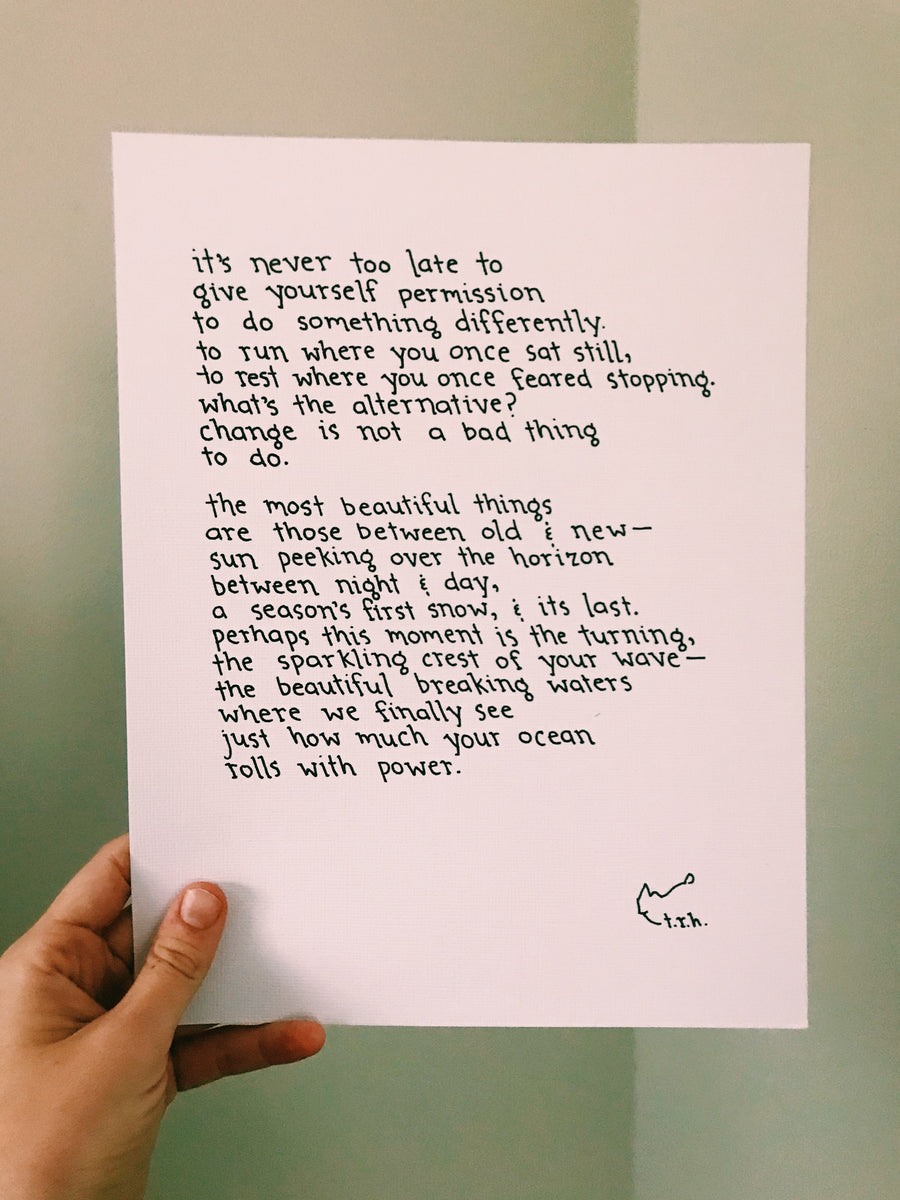 it's never too late to
give yourself permission
to do something differently.
to run where you once sat still,
to rest where you once feared stopping.
what's the alternative?
change is not a bad thing
to do.
the most beautiful things
are those between old & new—
sun peeking over the horizon
between night & day,
a season's first snow, & its last.
perhaps this moment is the turning,
the sparkling crest of your wave—
the beautiful breaking waters
where we finally see
just how much your ocean
rolls with power.
t.r.h.